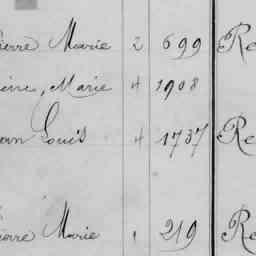 ierre Marie 2 699 Re
Marie 4 1908
Louis 4 1737 Re
ierre Marie 1 219 Re